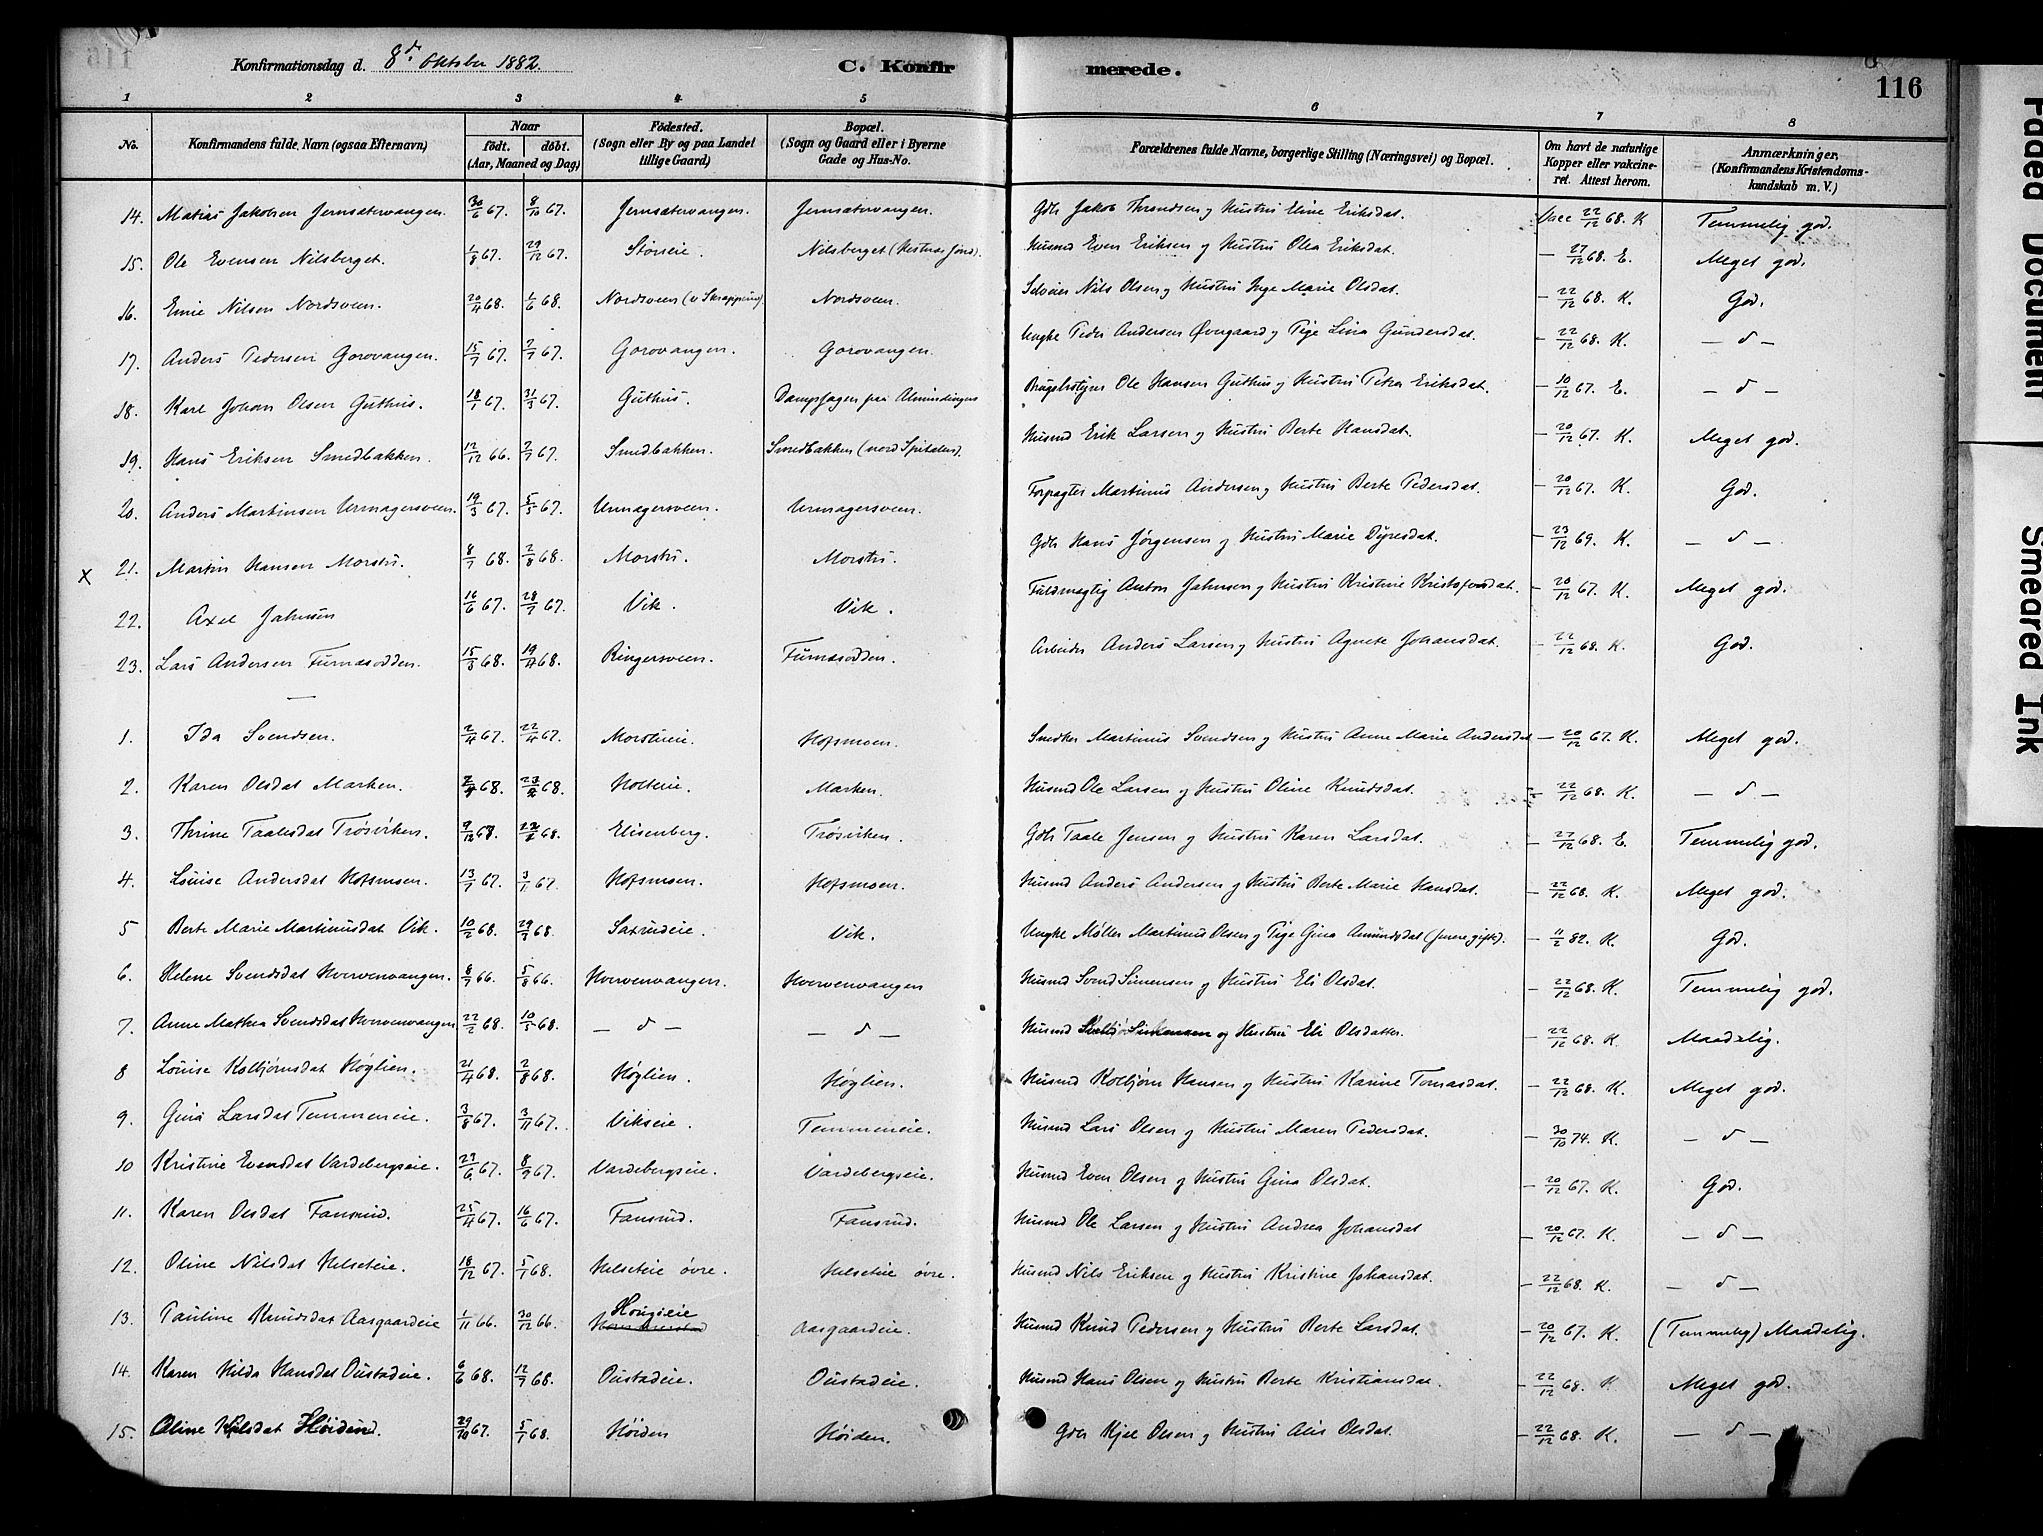 Konfirmationsdag d. 8de Oktober 1882.
C. Konfirmerede.
116
1 2 3 4 5 6 7 8
No. Konfirmandens fulde Navn (ogsaa Efternavn) Naar födt. döbt. (Aar, Maaned og Dag) Födested. (Sogn eller By og paa Landet tillige Gaard) Bopæl. (Sogn og Gaard eller i Byerne Gade og Hus-No. Forældrenes fulde Navne, borgerlige Stilling (Næringsvei) og Bopæl. Om havt de naturlige Kopper eller vakcineret. Attest herom. Anmærkninger, (Konfirmandens Kristendomskundskab m. V.)
14. Matias Jakobsen Jernsætervangen. 30/6 67. 8/10 67. Jernsætervangen. Jernsætervangen. Gdbr Jakob Throndsen og Hustru Eline Eriksdat. Vacc 22/12 68. K Temmelig god.
15. Ole Evensen Nilsberget. 1/8 67. 29/12 67. Störseie. Nilsberget (Hestnæsfjord). Husmd Even Eriksen og Hustru Olea Eriksdat. — 27/12 68. E. Meget god.
16. Emie Nilsen Nordsveen. 20/4 68. 1/6 68. Nordsveen (v Skrapperud) Nordsveen. Selveier Nils Olsen og Hustru Inge Marie Olsdat. — 22/12 68. K. God.
17. Anders Pedersen Gorovangen. 15/7 67. 7/7 67. Gorovangen. Gorovangen. Ungke Peder Andersen Øvergaard og Pige Lina Gundersdat. — 22/12 68. K. — d —
18. Karl Johan Olsen Guthus. 18/1 67. 31/3 67. Guthus. Dampsagen paa Almindingen Brugsbestyrer Ole Hansen Guthus og Hustru Petra Eriksdat. — 10/12 67. E. — d —
19. Hans Eriksen Smedbakken. 12/12 66. 2/7 67. Smedbakken. Smedbakken (nord Spitalen). Husmd Erik Larsen og Hustru Berte Hansdat. — 20/12 67. K. Meget god.
20. Anders Martinsen Urmagersveen. 19/3 67. 5/5 67. Urmagersveen. Urmagersveen. Forpagter Martinus Andersen og Hustru Berte Pedersdat. — 20/12 67. K. God.
x 21. Martin Hansen Morstu. 8/7 68. 2/8 68. Morstu. Morstu. Gdbr Hans Jørgensen og Hustru Marie Dyresdat. — 23/12 69. K. — d —
22. Axel Jahnsen 16/6 67. 28/7 67. Vik. Vik. Fuldmægtig Anton Jahnsen og Hustru Kristine Kristofersdat. — 20/12 67. K. Meget god.
23. Lars Andersen Furnæsodden. 15/3 68. 19/4 68. Ringersveen. Furnæsodden. Arbeider Anders Larsen og Hustru Agnete Johansdat. — 22/12 68. K. God.
—
1. Ida Svendsen. 2/4 67. 22/4 67. Morstueie. Hofsmoen. Snedker Martinus Svendsen og Hustru Anne Marie Andersdat — 20/12 67. K. Meget god.
2. Karen Olsdat Marken. 68. 68. Holteie. Marken. Husmd Ole Larsen og Hustru Oline Knudsdat. — 22/12 68. K. — d —
3. Thrine Taalesdat Trosviken. 9/12 68. 68. Elisenberg. Trosviken. Gdbr Taale Jensen og Hustru Karen Larsdat. — 27/12 68. E. Temmelig god.
4. Louise Andersdat Hofsmoen. 13/1 67. 3/1 67. Hofsmoen. Hofsmoen. Husmd Anders Andersen og Hustru Berte Marie Hansdat. — 22/12 68. K. Meget god.
5 Berte Marie Martinusdat Vik. 10/2 68. 29/3 68. Saxrudeie. Vik. Ungke Møller Martinus Olsen og Pige Gina Amundsdat (senere gifte). — 11/2 82. K. God.
6. Helene Svendsdat Hvervenvangen. 8/7 66. 5/8 66. Hvervenvangen. Hvervenvangen Husmd Svend Simensen og Hustru Eli Olsdat. — 22/12 68. K. Temmelig god.
7. Anne Mathea Svendsdat Hvervenvangen 22/2 68. 10/5 68. — d — — d — Husmd Simensen og Hustru Eli Olsdatter. — 22/12 68. K. Maadelig.
8 Louise Kolbjørnsdat Høglien. 21/4 68. 2/8 68. Høglien. Høglien. Husmd Kolbjørn Hansen og Hustru Karine Tomasdat. — 22/12 68. K. Meget god.
9. Gina Larsdat Temmeneie. 3/8 67. 3/11 67. Vikseie. Temmeneie. Husmd Lars Olsen og Hustru Maren Pedersdat. — 30/10 74. K. — d —
10 Kristine Evensdat Vardebergseie. 23/6 67. 8/9 67. Vardebergseie. Vardebergseie. Husmd Even Olsen og Hustru Gina Olsdat. — 20/12 67. K. God.
11. Karen Olsdat Fansrud. 25/4 67. 16/6 67. Fansrud. Fansrud. Husmd Ole Larsen og Hustru Andrea Johansdat — 20/12 67. K. — d —
12. Oline Nilsdat Helseteie. 18/12 67. 5/1 68. Helseteie övre. Helseteie övre. Husmd Nils Eriksen og Hustru Kristine Johansdat. — 22/12 68. K. — d —
13. Pauline Knudsdat Aasgaardeie 1/11 66. 30/12 66. Hougseie Aasgaardeie. Husmd Knud Pedersen og Hustru Berte Larsdat. — 20/12 67. K. (Temmelig) Maadelig.
14. Karen Hilda Hansdat Oustadeie. 6/6 68. 12/7 68. Oustadeie. Oustadeie. Husmd Hans Olsen og Hustru Berte Kristiansdat. — 22/12 68. K Meget god.
15. Oline Kjelsdat Høidend. 29/10 67. 5/1 68. Høiden Høiden. Gdbr Kjel Olsen og Hustru Alis Olsdat. — 22/12 68. K. — d —
Faded Document
Smeared Ink